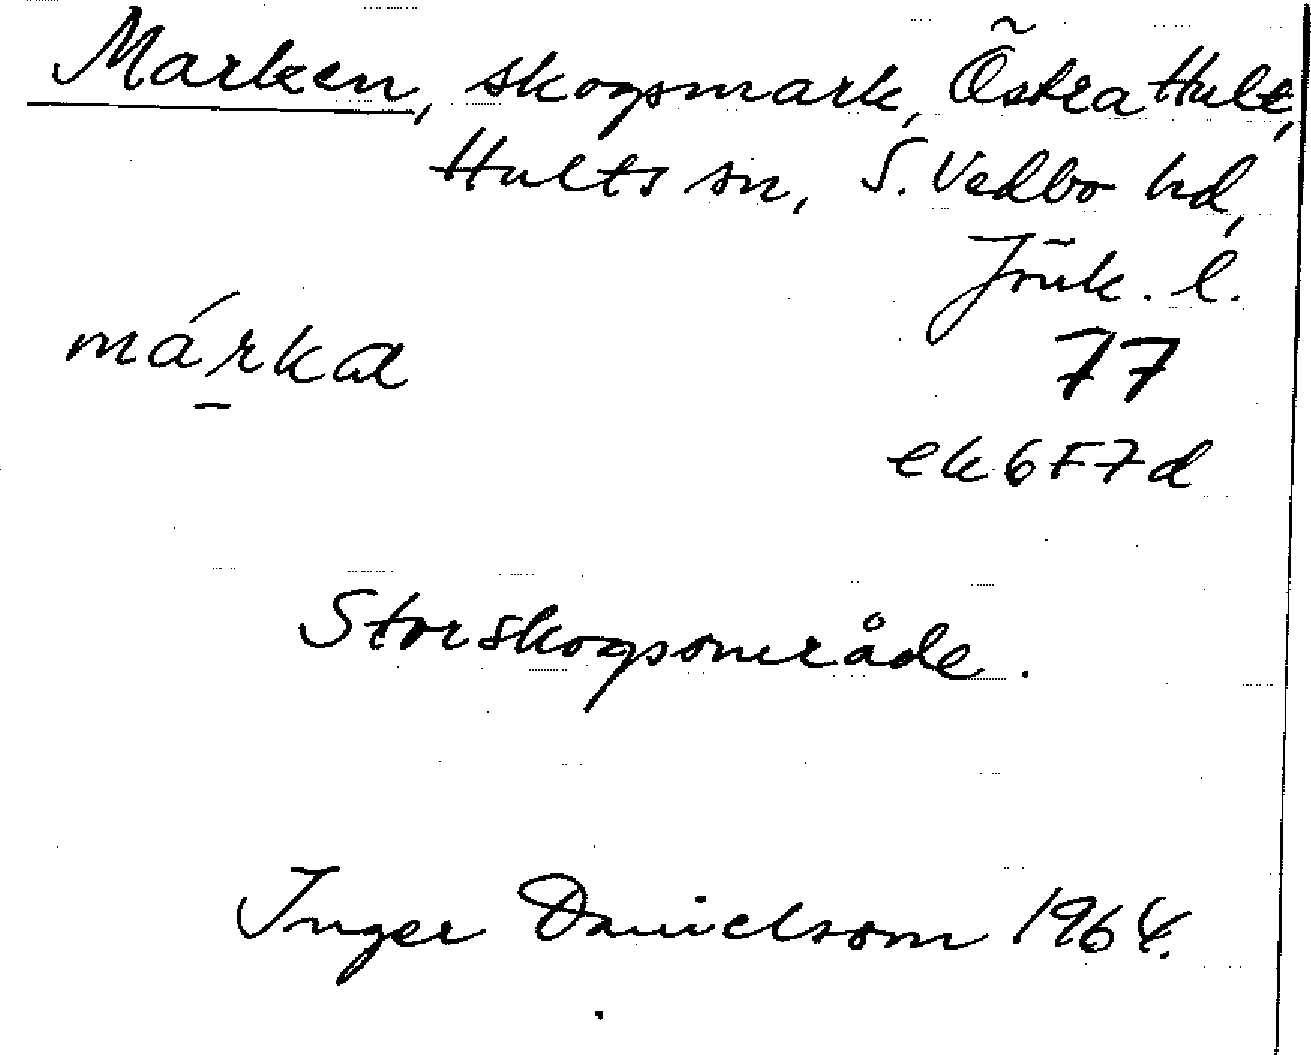 Marken, skogsmark, Östra Hult,
Hults sn, S. Vedbo hd,
Jönk. l.
márka
77
ek 6F7d
Storskogsområde.
Inger Danielsson 1964.